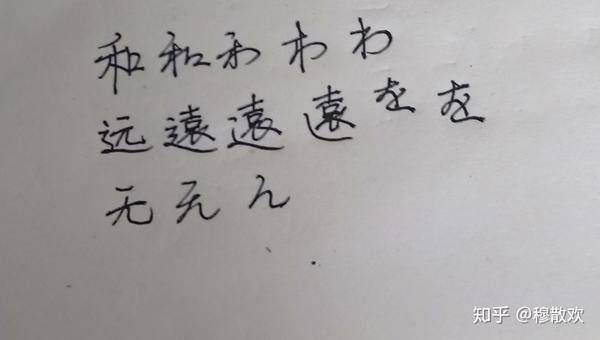 和和わわわ
远遠遠遠をを
无无ん
知乎 @穆散欢